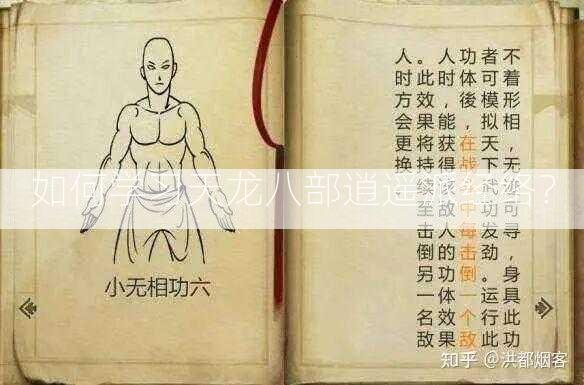 如何学习天龙八部逍遥派经络?
小无相功六
不着形相,无迹可寻,身具此功
者可模拟天下武功发劲。运行此
功体後,在战斗中每击倒一个敌
人时,能获得该敌人的功体效果
。此效果将持续至击倒另一名敌
人时方会更换
知乎 @洪都烟客